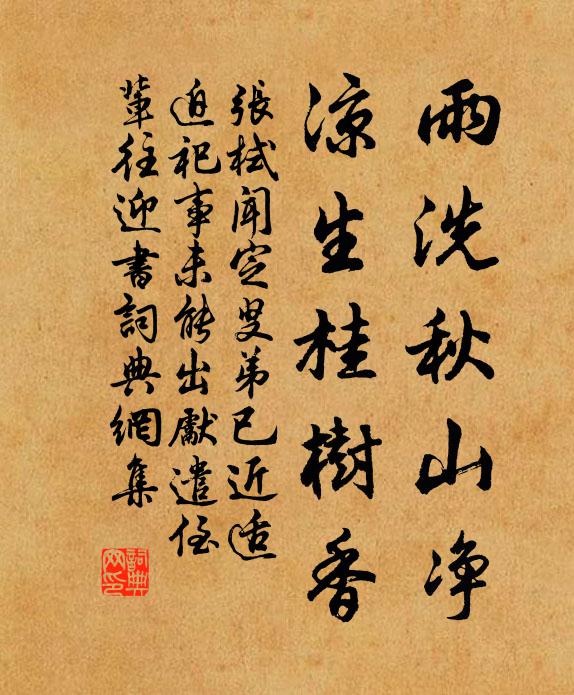 雨洗秋山净
凉生桂樹香
張栻聞定叟弟已近适
迫祀事未能出獻遣侄
輩往迎書詞典網集
詞典网印